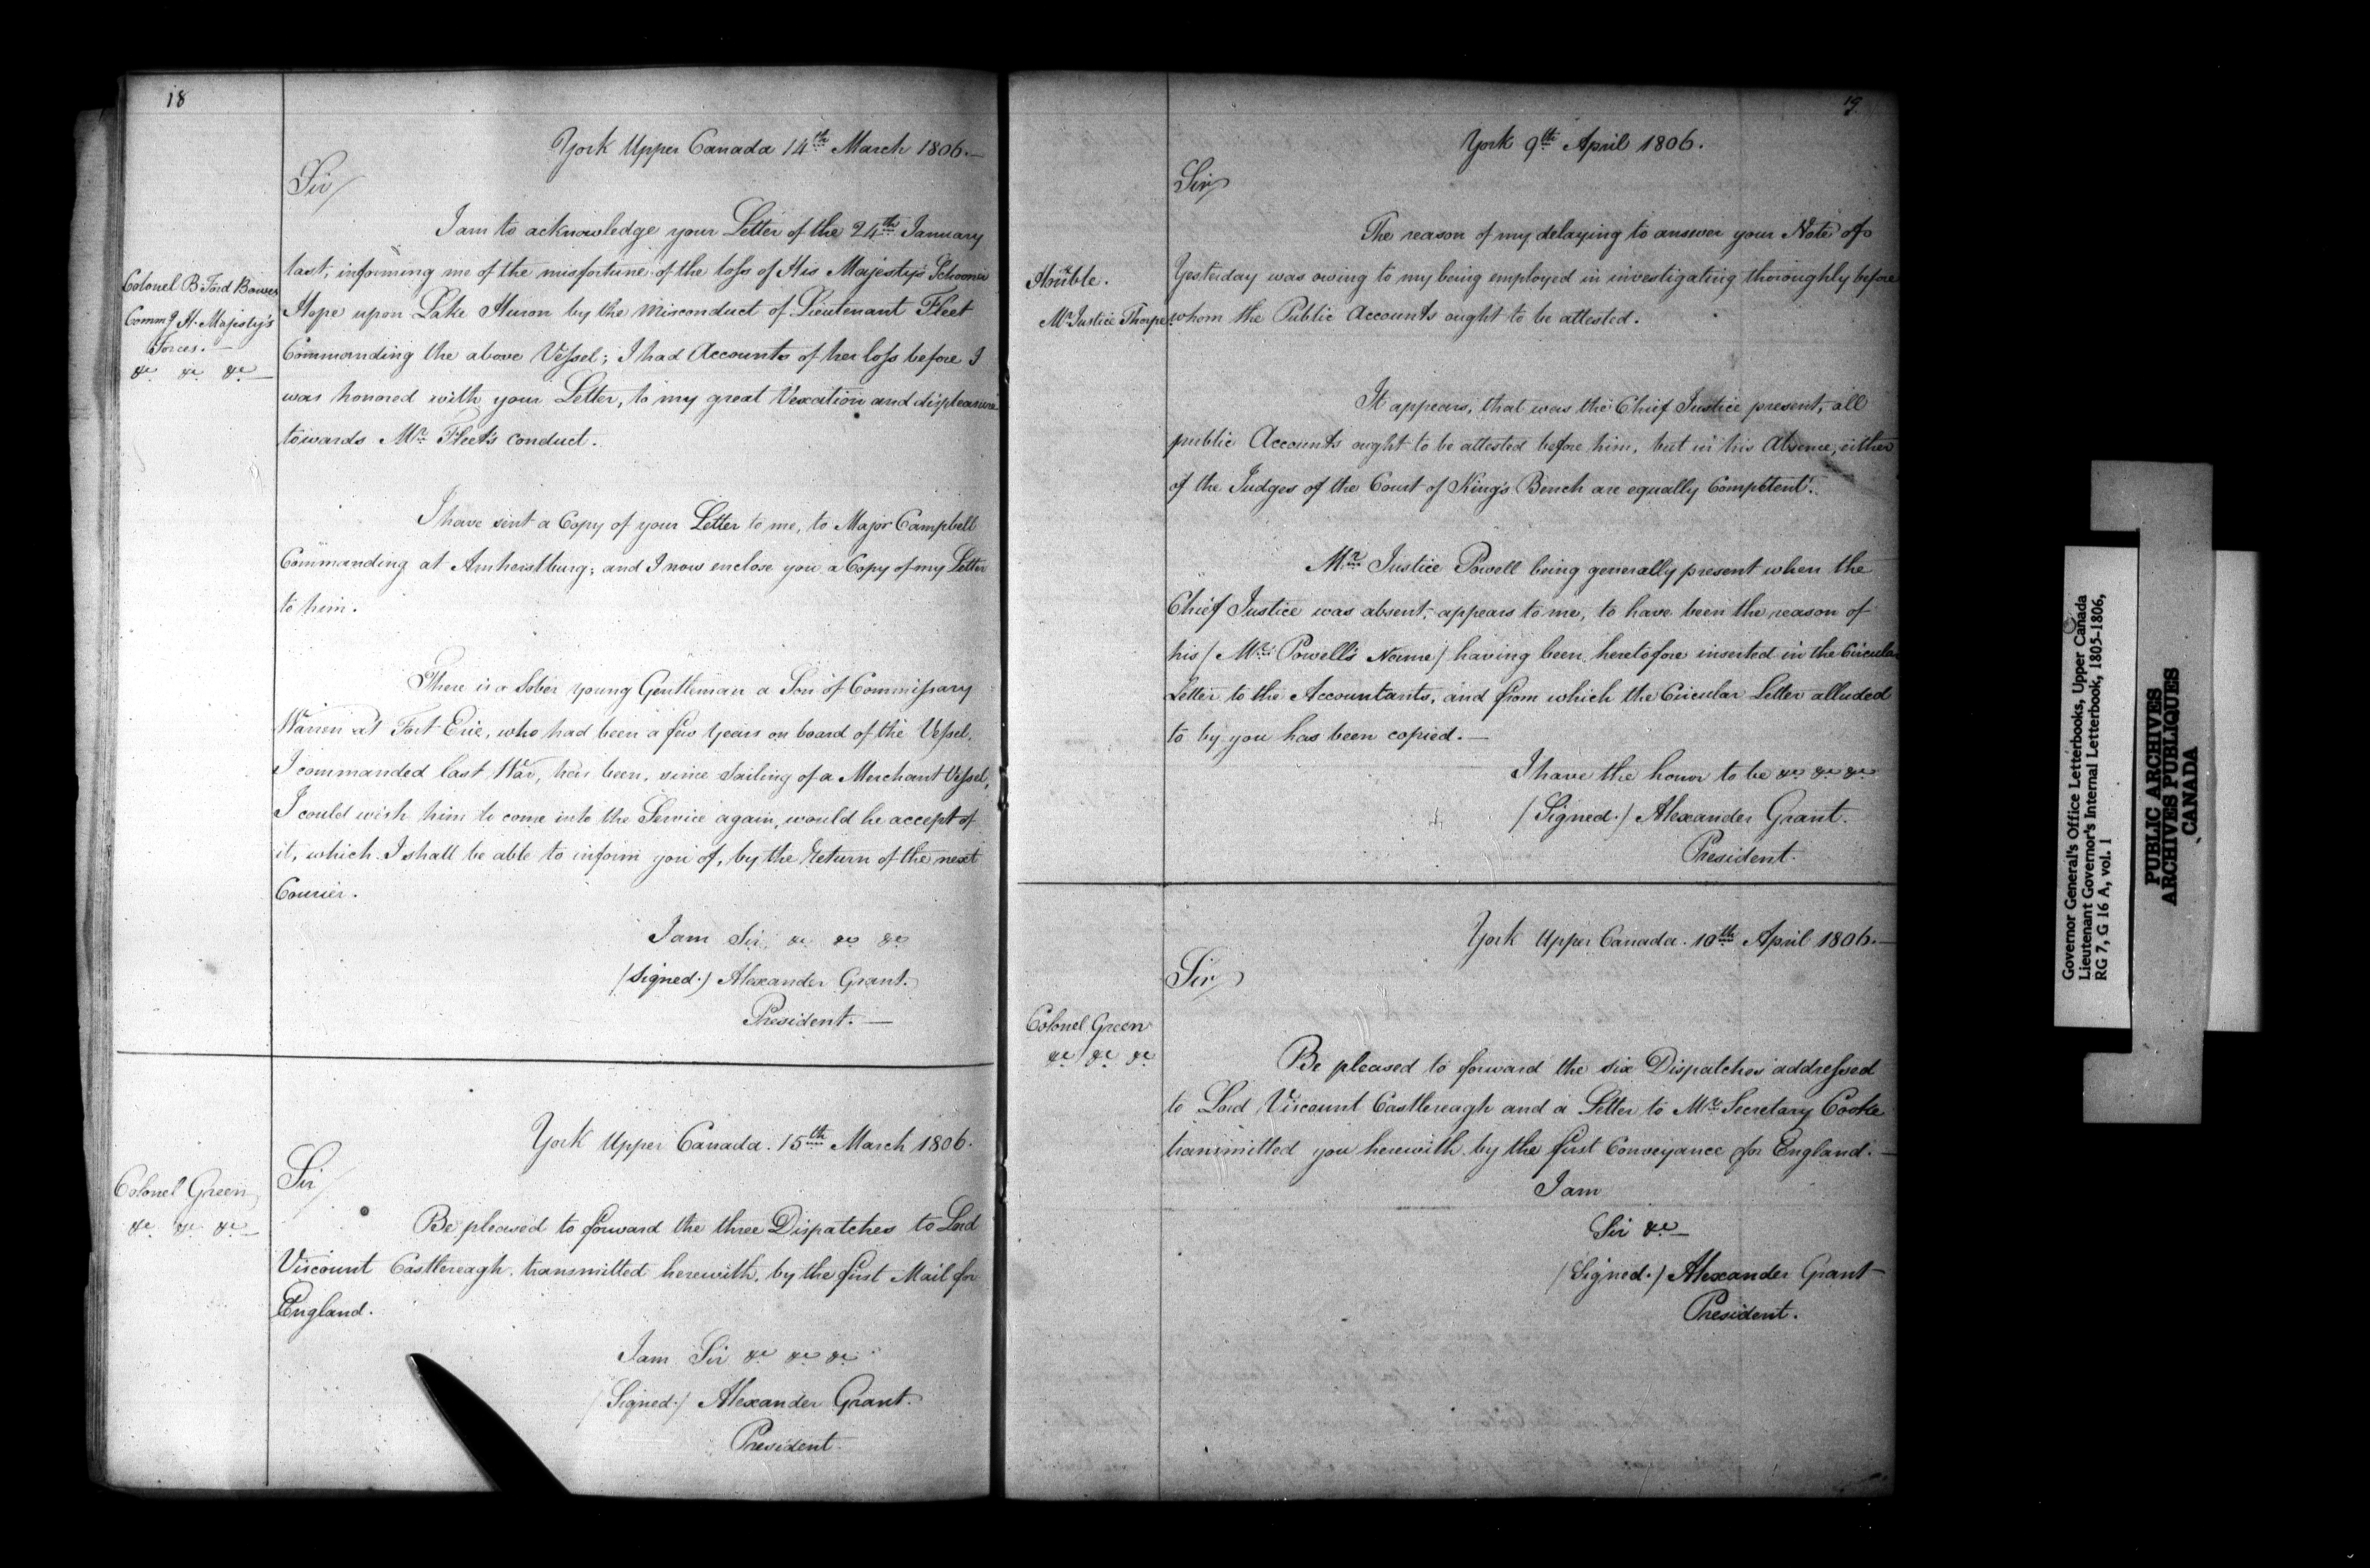 18
York Upper Canada 14th March 1806.—
Sir/
Colonel B. Ford Bowes
Commg H. Majesty's
Forces.—
&c &c &c—
I am to acknowledge your Letter of the 24th January
last, informing me of the misfortune of the loss of His Majesty's Schooner
Hope upon Lake Huron by the Misconduct of Lieutenant Fleet
Commanding the above Vessel; I had Accounts of her loss before I
was honored with your Letter, to my great Vexation and displeasure
towards Mr Fleet's conduct.
I have sent a Copy of your Letter to me, to Major Campbell
Commanding at Amherstburg; and I now enclose you a Copy of my Letter
to him.
There is a Sober young Gentleman a Son of Commissary
Warren at Fort Erie, who had been a few years on board of the Vessel,
I commanded last War, has been, since Sailing of a Merchant Vessel,
I could wish him to come into the Service again, would he accept of
it, which I shall be able to inform you of, by the Return of the next
Courier.
I am Sir, &c &c &c
/Signed./ Alexander Grant.
President.—
York Upper Canada. 15th March 1806.
Colonel Green
&c &c &c—
Sir/
Be pleased to forward the three Dispatches to Lord
Viscount Castlereagh transmitted herewith, by the first Mail for
England.
I am Sir &c &c &c
/Signed./ Alexander Grant.
President.
19
York 9th April 1806.
Sir/
Honble.
Mr Justice Thorpe
The reason of my delaying to answer your Note of
Yesterday was owing to my being employed in investigating thoroughly before
whom the Public Accounts ought to be attested.
It appears, that was the Chief Justice present, all
public Accounts ought to be attested before him, but in his Absence, either
of the Judges of the Court of King's Bench are equally Competent.
Mr Justice Powell being generally present when the
Chief Justice was absent, appears to me, to have been the reason of
his / Mr Powell's Name / having been heretofore inserted in the Circular
Letter to the Accountants, and from which the Circular Letter alluded
to by you has been copied.—
I have the honor to be &c &c &c
/Signed./ Alexander Grant.
President.
York Upper Canada. 10th April 1806.—
Sir/
Colonel Green
&c &c &c
Be pleased to forward the six Dispatches addressed
to Lord Viscount Castlereagh and a Letter to Mr Secretary Cooke
transmitted you herewith by the first Conveyance for England.—
I am
Sir &c—
/Signed./ Alexander Grant
President.
Governor General's Office Letterbooks, Upper Canada
Lieutenant Governor's Internal Letterbook, 1805-1806,
RG 7, G 16 A, vol. 1
PUBLIC ARCHIVES
ARCHIVES PUBLIQUES
CANADA